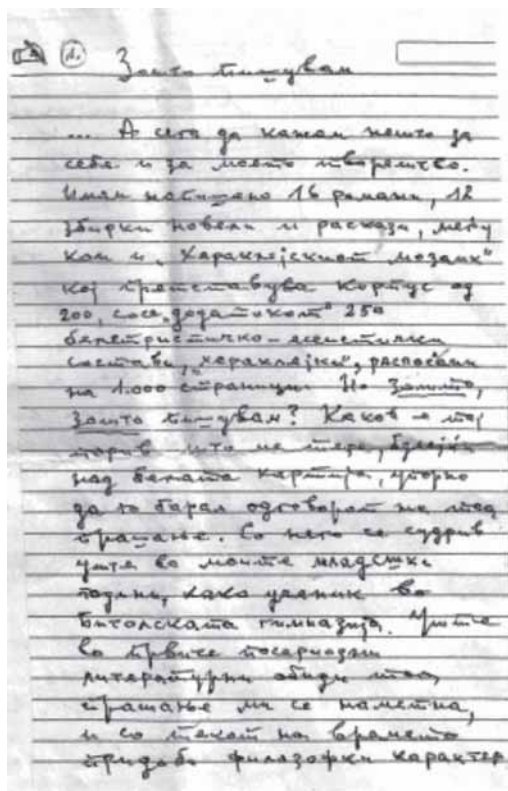 1.
Зошто пишувам
... А сега да кажам нешто за
себе и за моето творештво.
Имам напишено 16 романи, 12
збирки новели и раскази, меѓу
кои и „Хераклејскиот мозаик“
кој претставува корпус од
200, сосе „додатокот“ 250
белетристичко-есеистички
состави, „хераклејки“, распослани
на 1.000 страници. Но зошто,
зошто пишувам? Каков е тој
порив што ме тера, бдеејќи
над белата хартија, упорно
да го барам одговорот на тоа
прашање. Со него се судрив
уште во моите младешки
години, како ученик во
Битолската гимназија. Уште
во првите посериозни
литературни обиди тоа
прашање ми се наметна,
и со текот на времето
придоби филозофски карактер